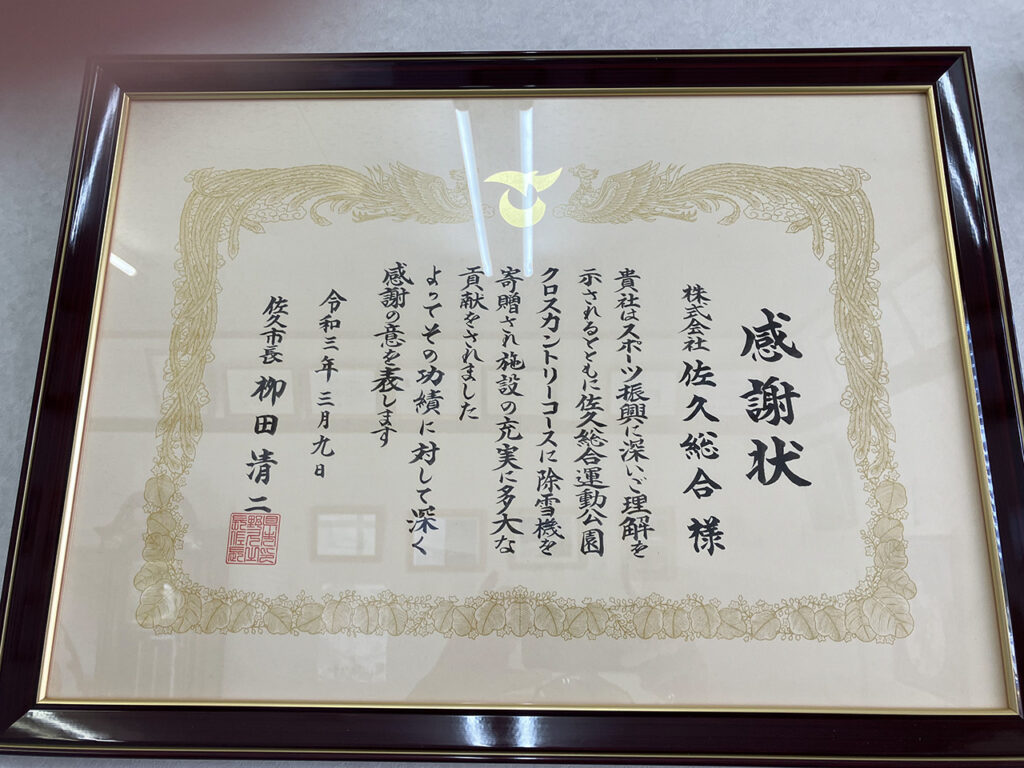 感謝状
株式会社 佐久総合 様
貴社はスポーツ振興に深いご理解を
示されるとともに佐久総合運動公園
クロスカントリーコースに除雪機を
寄贈され施設の充実に多大な
貢献をされました
よってその功績に対して深く
感謝の意を表します
令和三年三月九日
佐久市長 栁田清二